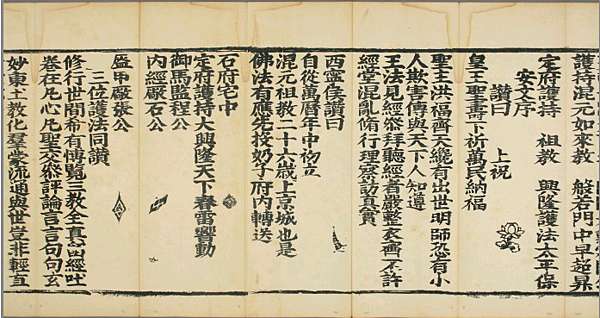 護持混元如來教 般若門中早超昇
定府護持 祖教 興隆護法太平保
安文序
讚曰 上祝
皇王聖壽下祈萬民納福
聖主洪福齊天纔有出世明師恐有小
人欺害傳與天下人知道
王法見經叅拜聽經者嚴整衣齊不許
經堂混亂脩行理察訪真實
西靈侯讚曰
自從萬曆年中初立
混元祖教二十六歲上京城也是
佛法有應先投奶子府內轉送
石府宅中
定府護持大興隆天下春雷響動
御馬監程公
內經厰石公
盔甲厰張公
三位護法同讚
修行世間希有博覽三教全真留經吐
卷在凡心凡聖交叅評論言言句句玄
妙東土教化羣蒙流通與世豈非輕直